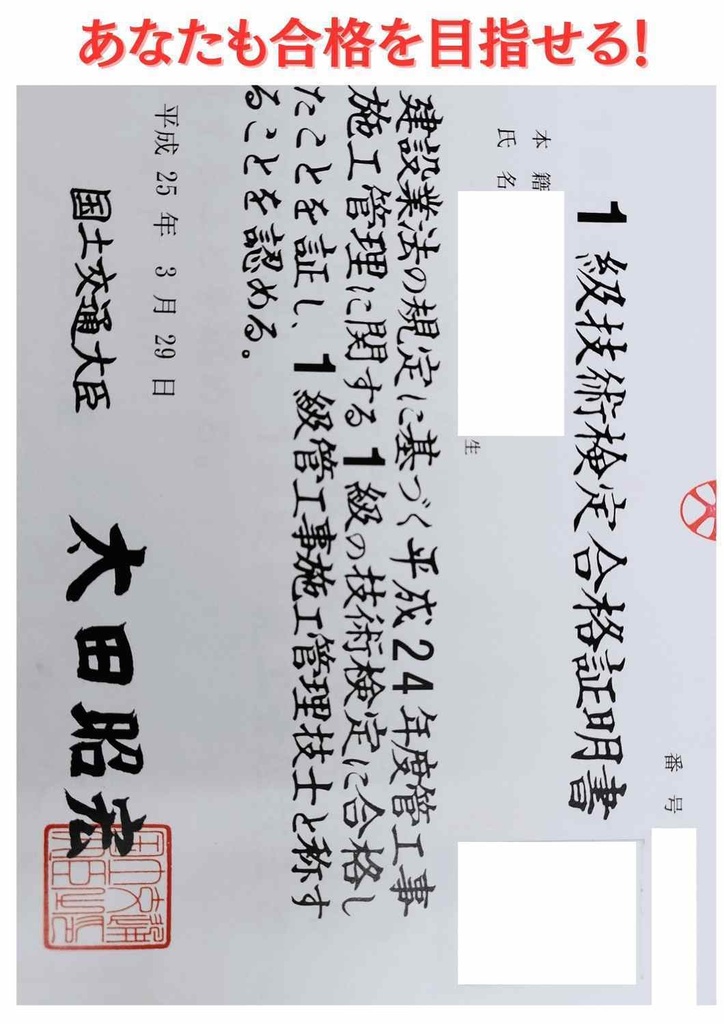 あなたも合格を目指せる!
番号
1級技術検定合格証明書
本籍
氏名
生
建設業法の規定に基づく平成24年度管工事
施工管理に関する1級の技術検定に合格し
たことを証し、1級管工事施工管理技士と称す
ることを認める。
平成25年3月29日
国土交通大臣 太田昭宏